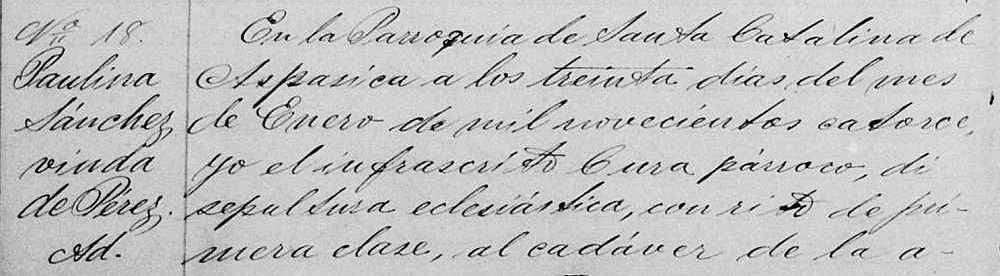 No 18.
Paulina
Sánchez
viuda
de Pérez.
Ad.
En la Parroquia de Santa Catalina de
Aspasica a los treinta días del mes
de Enero de mil novecientos catorce,
yo el infrascrito Cura párroco, di
sepultura eclesiástica, con rito de pri-
mera clase, al cadáver de la a-